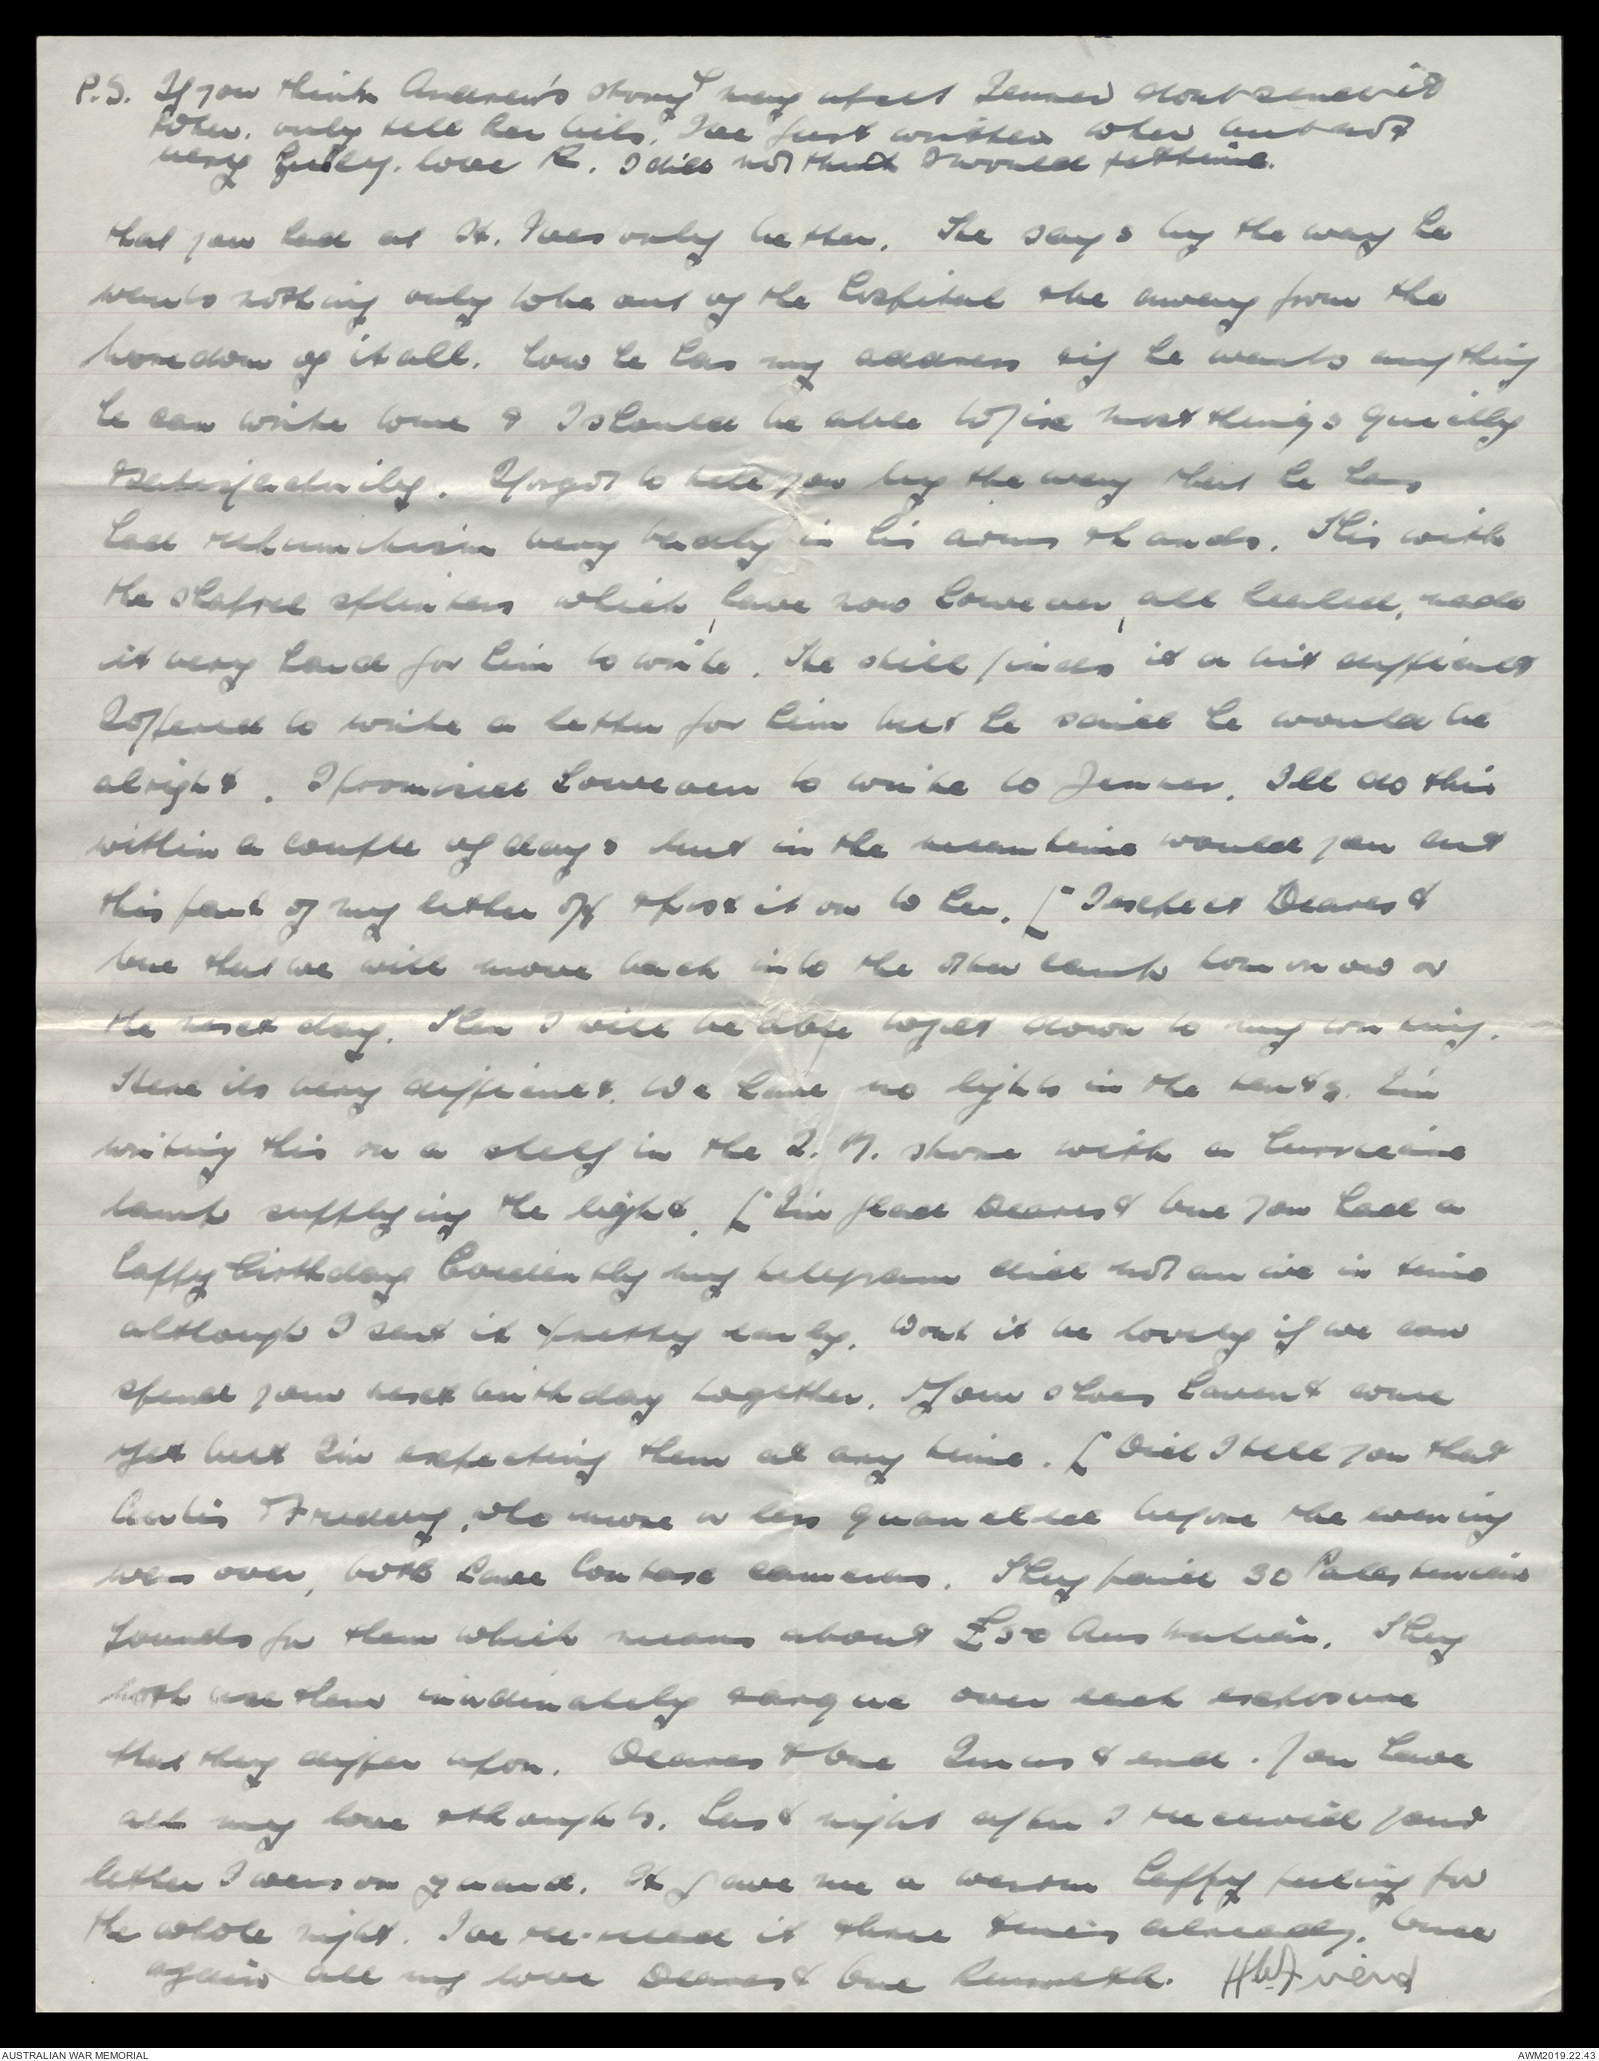 P.S. If you think Andrew's story may upset Jenner dont send it
to her. only tell her bits. I've just written to her but not
very fully. love K. I did not think I would get time.
that you had at St. Ives only better. He says by the way he
wants nothing only to be out of the hospital & be away from the
boredom of it all. how he has my address & if he wants anything
he can write to me & I should be able to fix most things quickly
& satisfactorily. I forgot to tell you by the way that he has
had rehumatism very badly in his arms & hands. This with
the shapnel splinters which, have now however, all healed, made
it very hard for him to write. He still finds it a bit difficult
I offered to write a letter for him but he said he would be
alright. I promised however to write to Jenner. I'll do this
within a couple of days but in the meantime would you cut
this part of my letter off & post it on to her. [ I expect Dearest
One that we will move back into the other camp tomorrow or
the next day. Then I will be able to get down to my writing.
Here its very difficult. We have no lights in the tents. I'm
writing this on a shelf in the Q.M. store with a hurricane
lamp supplying the light. [ I'm glad Dearest One you had a
happy birthday. Evidently my telegram did not arrive in time
although I sent it pretty early. Wont it be lovely if we can
spend your next birthday together. Your shoes havent come
yet but I'm expecting them at any time. [ Did I tell you that
Curtis & Freddy, who more or less quarelled before the evening
was over, both have Contax cameras. They paid 30 Palestinian
pounds for them which means about £50 Australian. They
both use them inordinately & argue over each exposure
that they differ upon. Dearest One I must end. You have
all my love & thoughts. Last night after I received your
letter I was on guard. It gave me a warm happy feeling for
the whole night. I've re-read it three times already. Once
again all my love Dearest One Kenneth. HWFriend
AUSTRALIAN WAR MEMORIAL
AWM2019.22.43